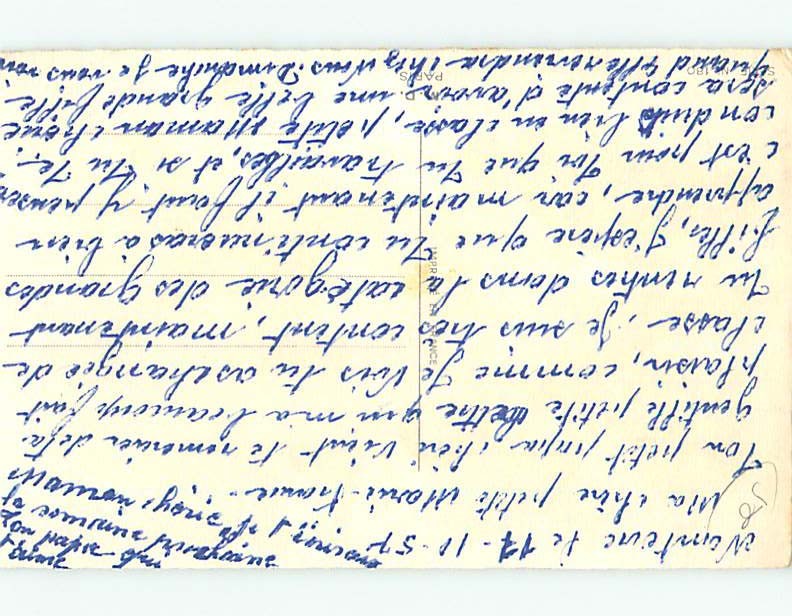 Nanterre le 17-10-57
Ma chère petite Marie-France.
Ton petit papa chéri vient te remercier de ta
gentille petite lettre qui m'a beaucoup fait
plaisir, comme je vois tu as changée de
classe, je suis très content, maintenant
Tu rentres dans la catégorie des grandes
filles, J'espère que Tu continueras à bien
apprendre, car maintenant il faut y penser
c'est pour Toi que Tu travailles, et si Tu Te
conduis bien en classe, petite Maman chérie
sera contente d'avoir une belle grande fille
quand elle reviendra chez Vous. Dimanche je vous
Ton papa qui
t'aime
et
semaine prochaine
Maman
IMPRIMÉ EN FRANCE
PARIS
SÉRIE N° 180
58